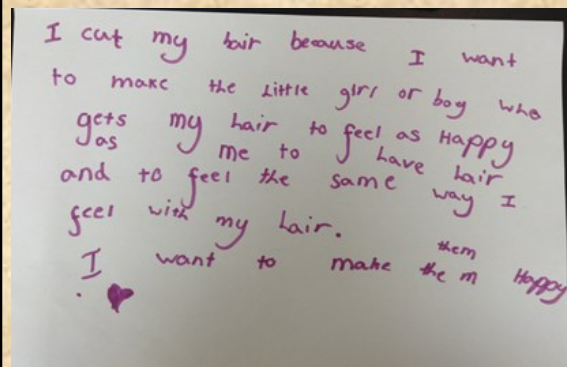 I cut my hair because I want
to make the Little girl or boy who
gets my hair to feel as Happy
as me to have hair
and to feel the same way I
feel with my hair.
them
I want to make the m Happy
.